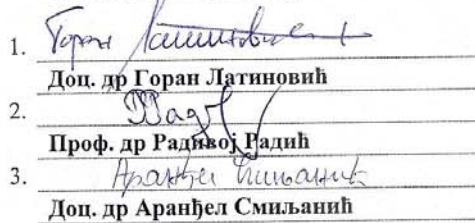 1. Горан Латиновић
Доц. др Горан Латиновић
2.
Проф. др Радивој Радић
3. Аранђел Смиљанић
Доц. др Аранђел Смиљанић